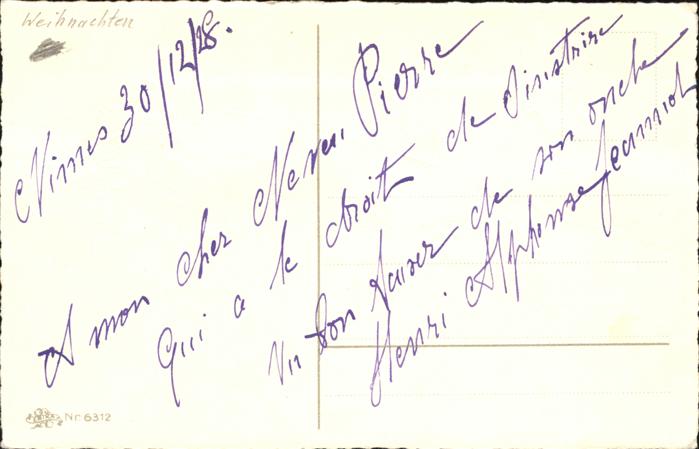 Weihnachten
Nimes 30/12/28.
A mon cher Neveu Pierre
qui a le droit de s'instrire
Un bon baiser de son oncle
Henri Alphonse Jeannot
Nr. 6312